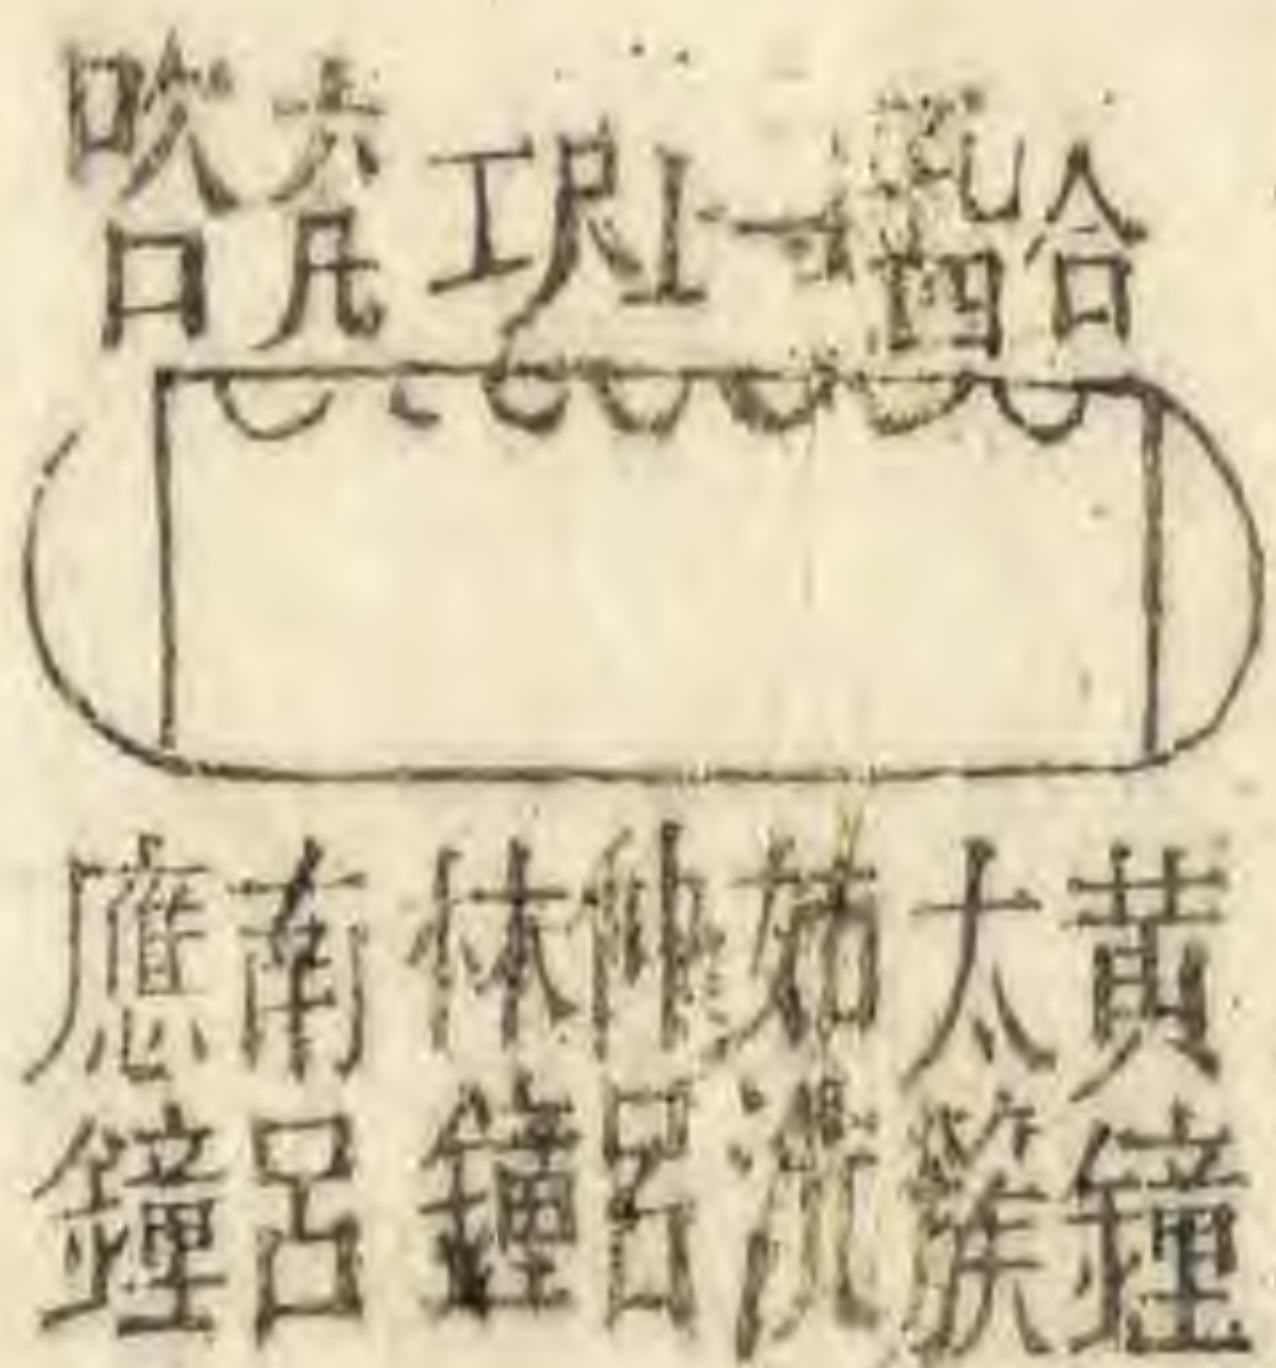 合
四
一
上
尺
工
六凡
吹口
黄鐘
太簇
姑洗
仲呂
林鐘
南呂
應鐘